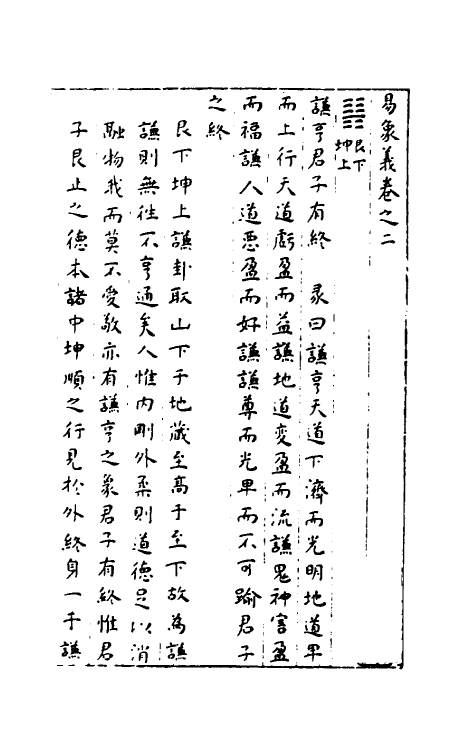 易象義卷之二
䷎艮下坤上
謙亨君子有終　彖曰謙亨天道下濟而光明地道卑
而上行天道虧盈而益謙地道變盈而流謙鬼神害盈
而福謙人道惡盈而好謙謙尊而光卑而不可踰君子
之終
艮下坤上謙卦取山下于地藏至高于至下故為謙
謙則無往不亨通矣人惟內剛外柔則道德足以消
融物我而莫不愛敬亦有謙亨之象君子有終惟君
子艮止之德本諸中坤順之行見於外終身一于謙